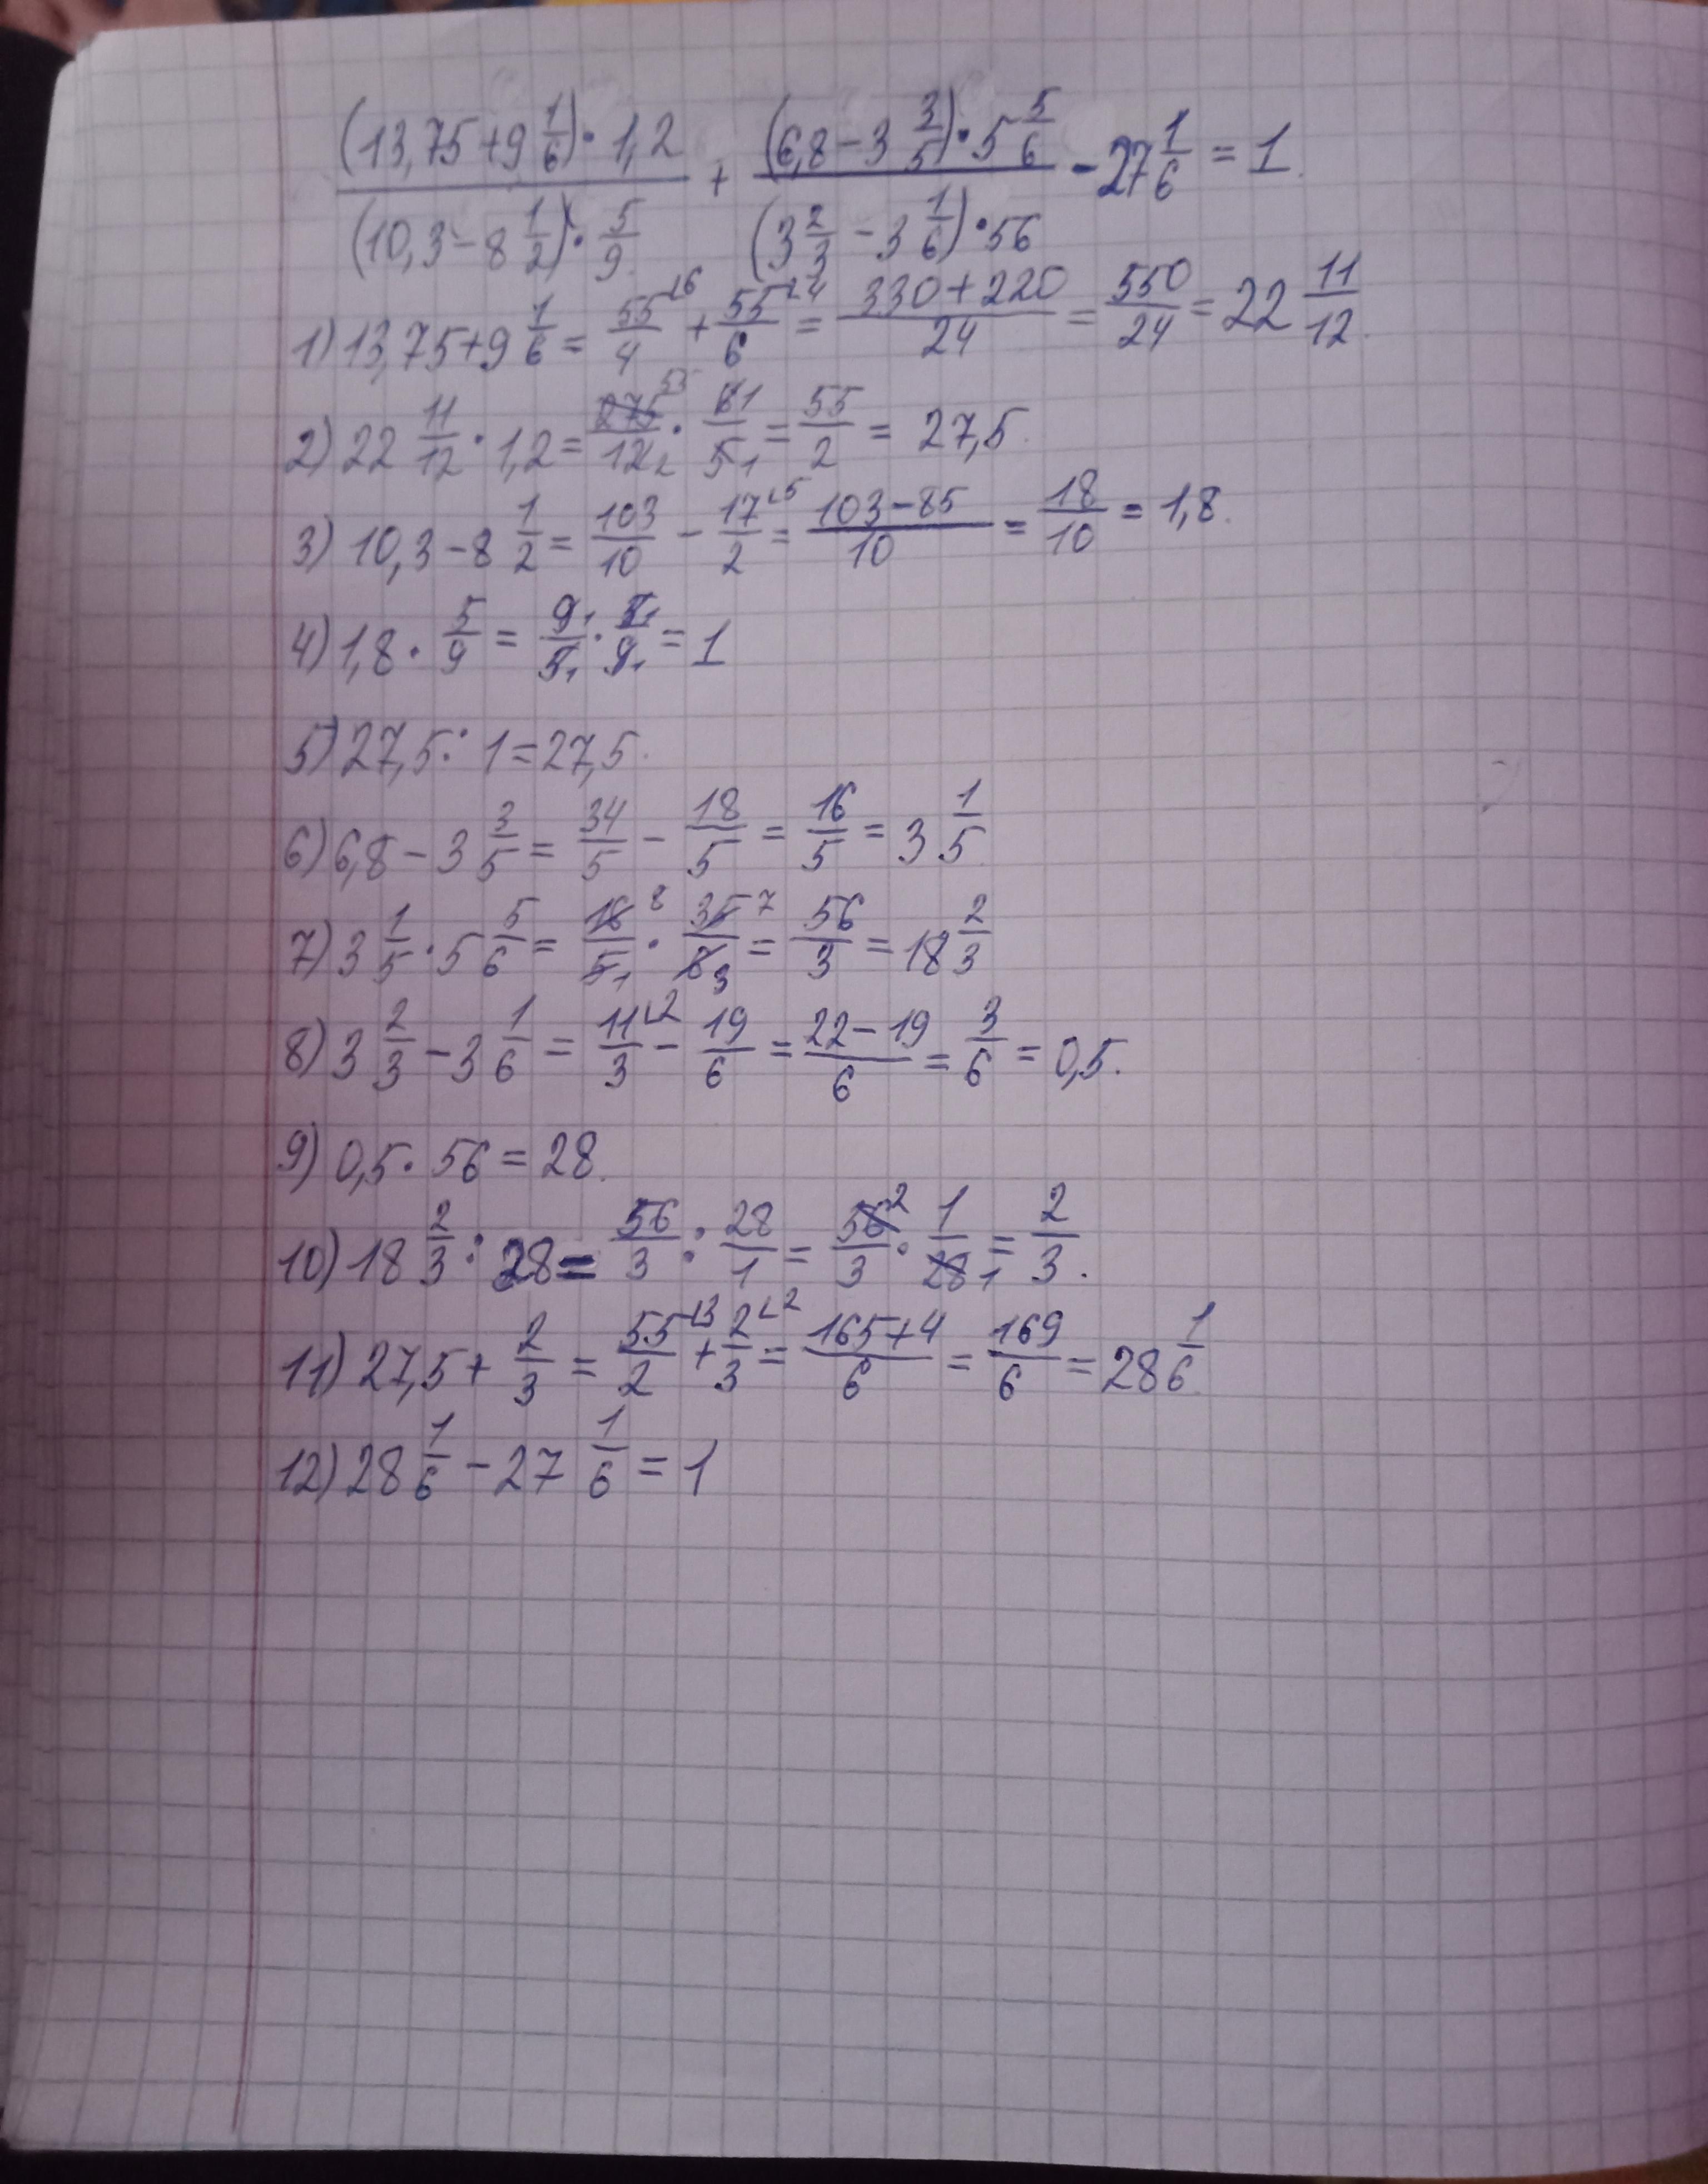 (13,75+9 1/6)·1,2 / (10,3-8 1/2)·5/9 + (6,8-3 3/5)·5 5/6 / (3 2/3-3 1/6)·56 - 27 1/6 = 1.
1) 13,75+9 1/6 = 55/4 ⌞6 + 55/6 ⌞4 = 330+220/24 = 550/24 = 22 11/12.
2) 22 11/12 · 1,2 = 275 55/12 2 · 6 1/5 1 = 55/2 = 27,5.
3) 10,3-8 1/2 = 103/10 - 17/2 ⌞5 = 103-85/10 = 18/10 = 1,8.
4) 1,8 · 5/9 = 9 1/5 1 · 5 1/9 1 = 1
5) 27,5 : 1 = 27,5.
6) 6,8-3 3/5 = 34/5 - 18/5 = 16/5 = 3 1/5
7) 3 1/5 · 5 5/6 = 16 8/5 1 · 35 7/6 3 = 56/3 = 18 2/3
8) 3 2/3 - 3 1/6 = 11/3 ⌞2 - 19/6 = 22-19/6 = 3/6 = 0,5.
9) 0,5 · 56 = 28.
10) 18 2/3 : 28 = 56/3 : 28/1 = 56 2/3 · 1/28 1 = 2/3.
11) 27,5 + 2/3 = 55/2 ⌞3 + 2/3 ⌞2 = 165+4/6 = 169/6 = 28 1/6.
12) 28 1/6 - 27 1/6 = 1